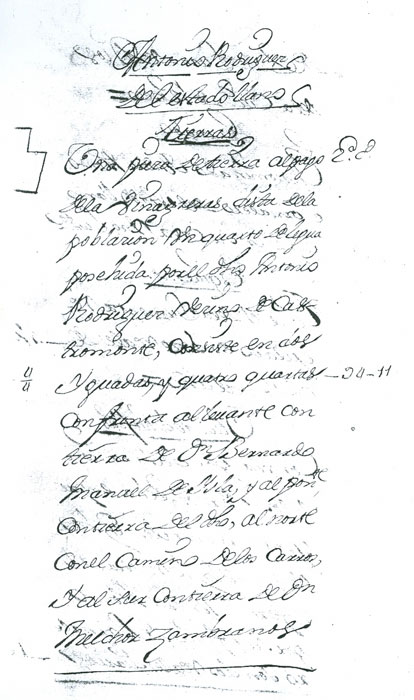 Antonio Rodriguez
= del estado llano
Tierras
Una pieza de tierra al pago 2ª. d
de la Viñagreras dista de la
poblazion Un quarto de legua
posehida por el dho Antonio
Rodriguez Vezino de Cas
tromonte, Consiste en dos
Yguadas, y quatro quartas - 24-11
Confronta al levante con
tierra de Dn Bernardo
Manuel de Isla, y al pon.te
Con tierra del dho, al norte
Con el Camino de los Carros,
Y al Sur Con tierra de Dn
Melchor Zambranos